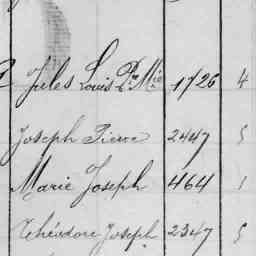 Jules Louis Pre Mie 1726 4
Joseph Pierre 2447 5
Marie Joseph 464 1
Théodore Joseph 2347 5